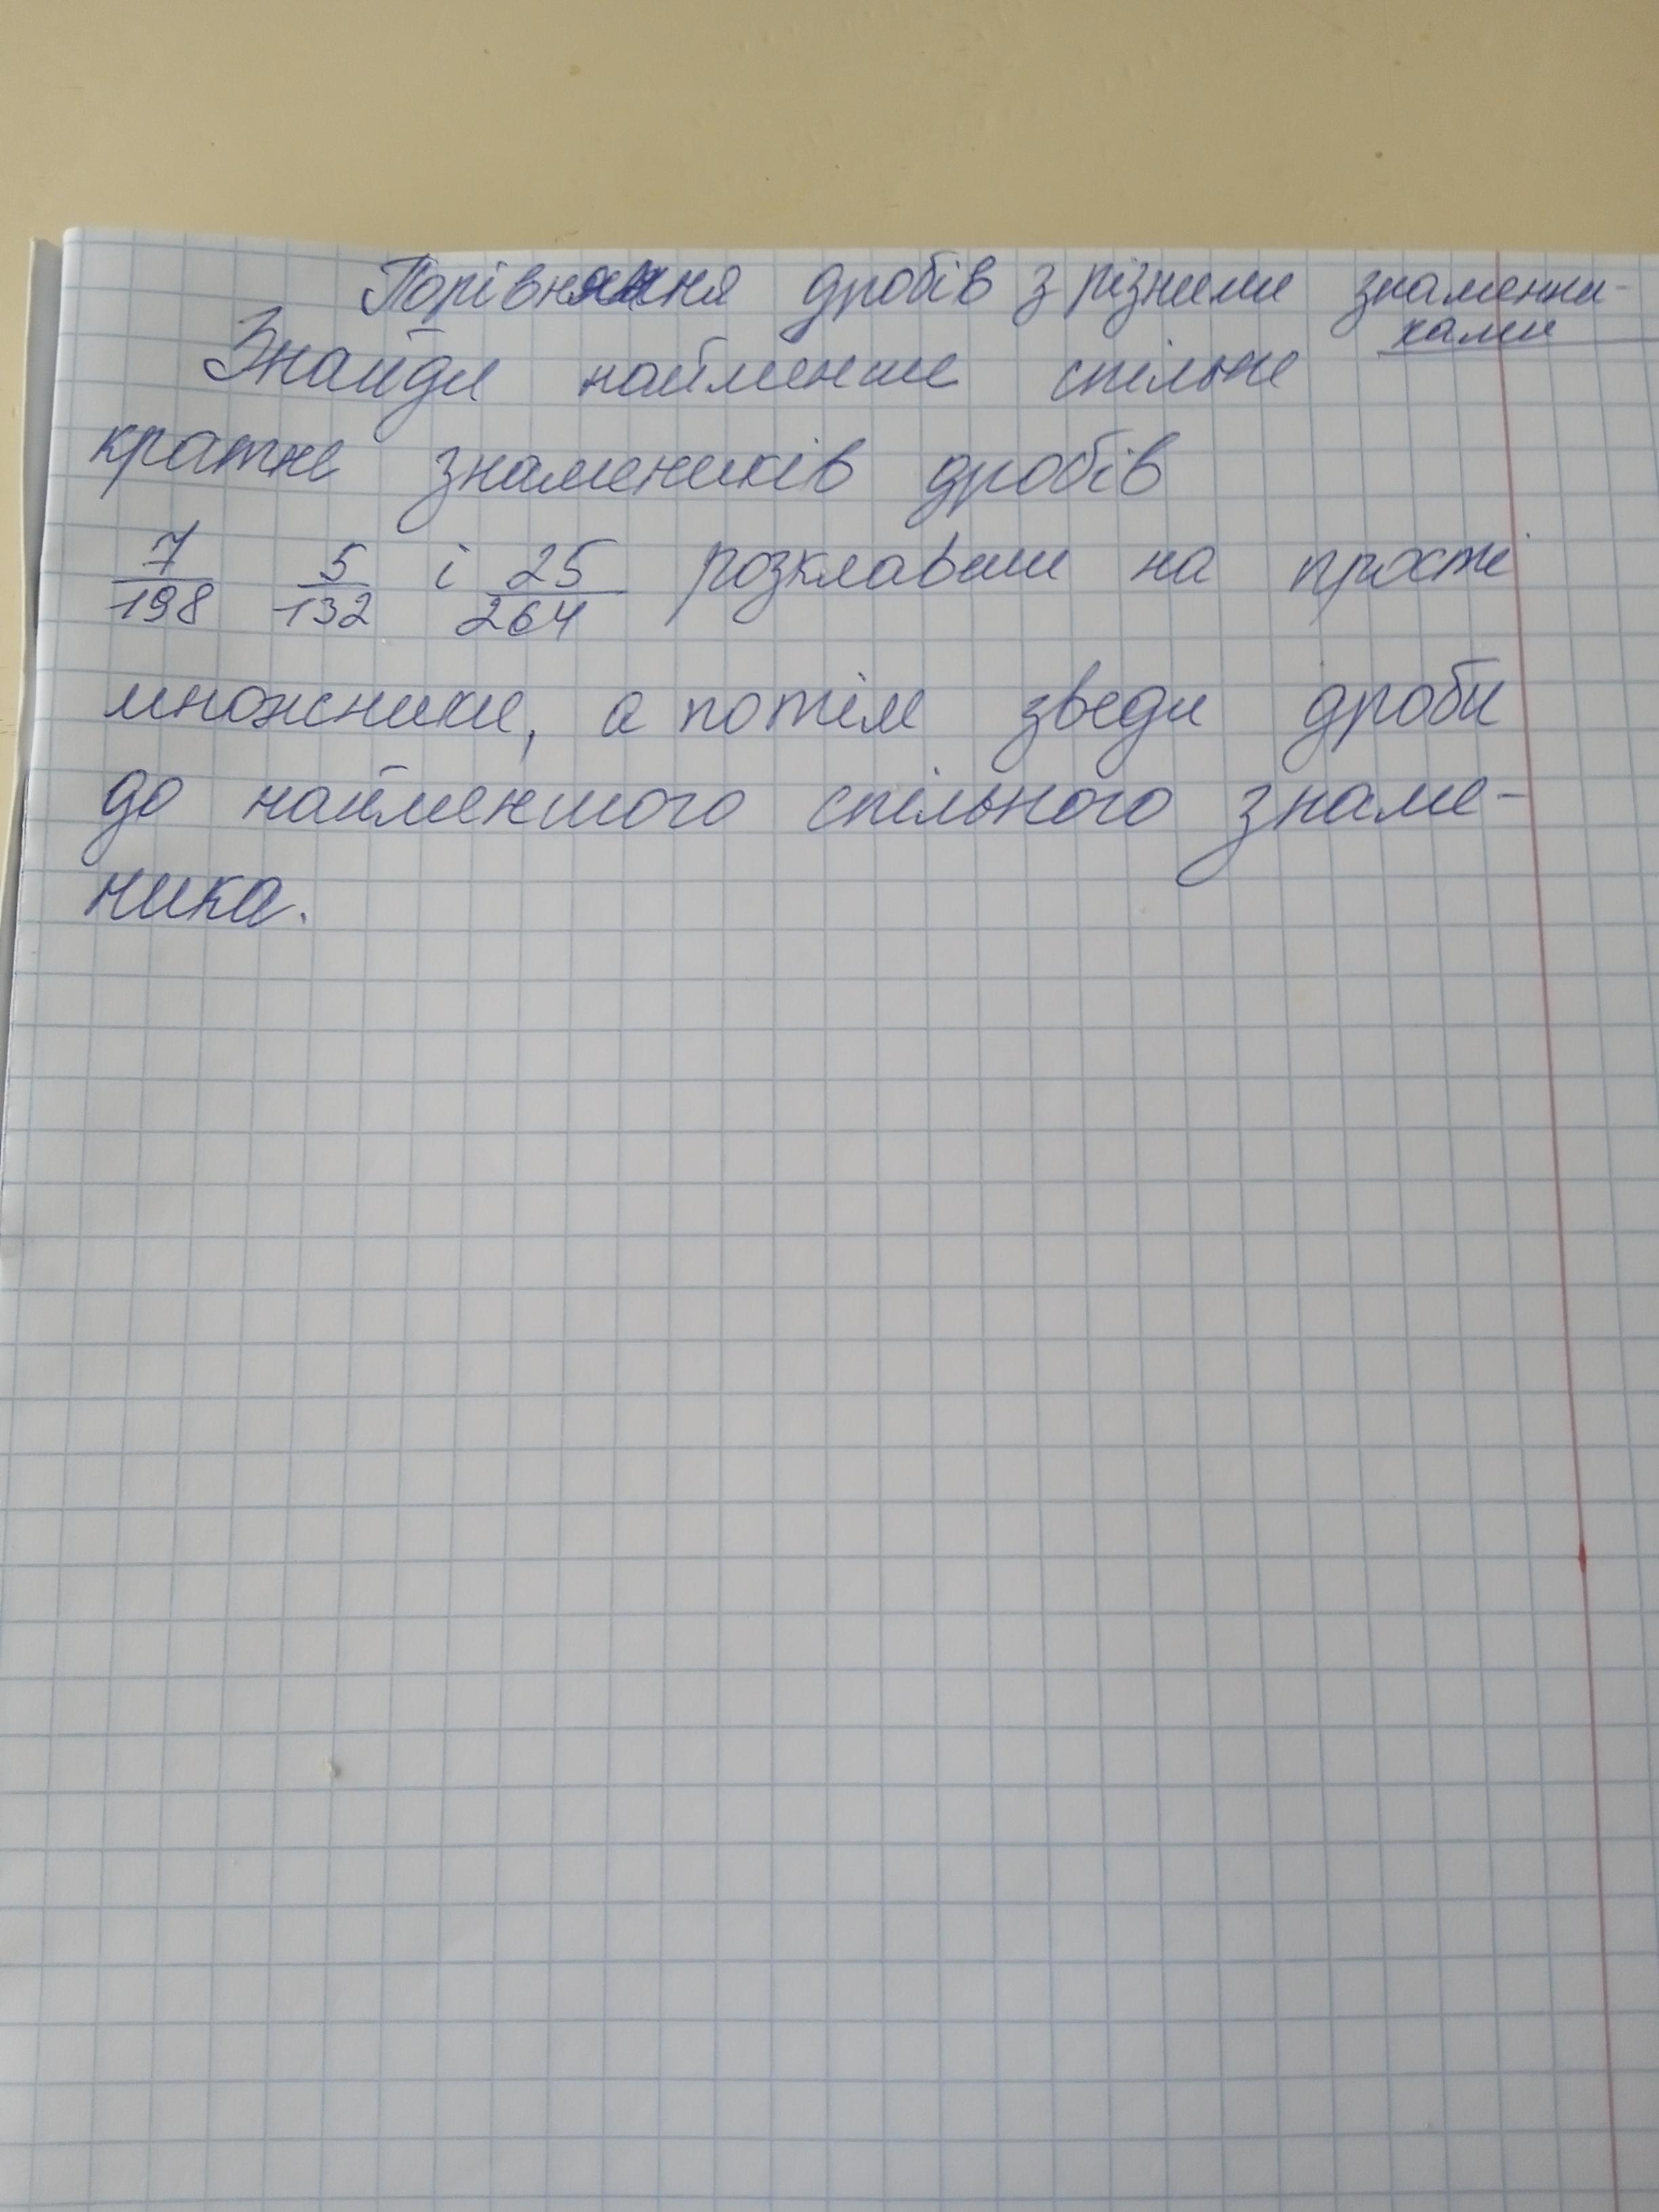 Порівняння дробів з різними знаменни-
ками
Знайди найменше спільне
кратне знамеників дробів
7/198 5/132 і 25/264 розклавши на прості
множники, а потім зведи дроби
до найменшого спільного знаме-
ника.